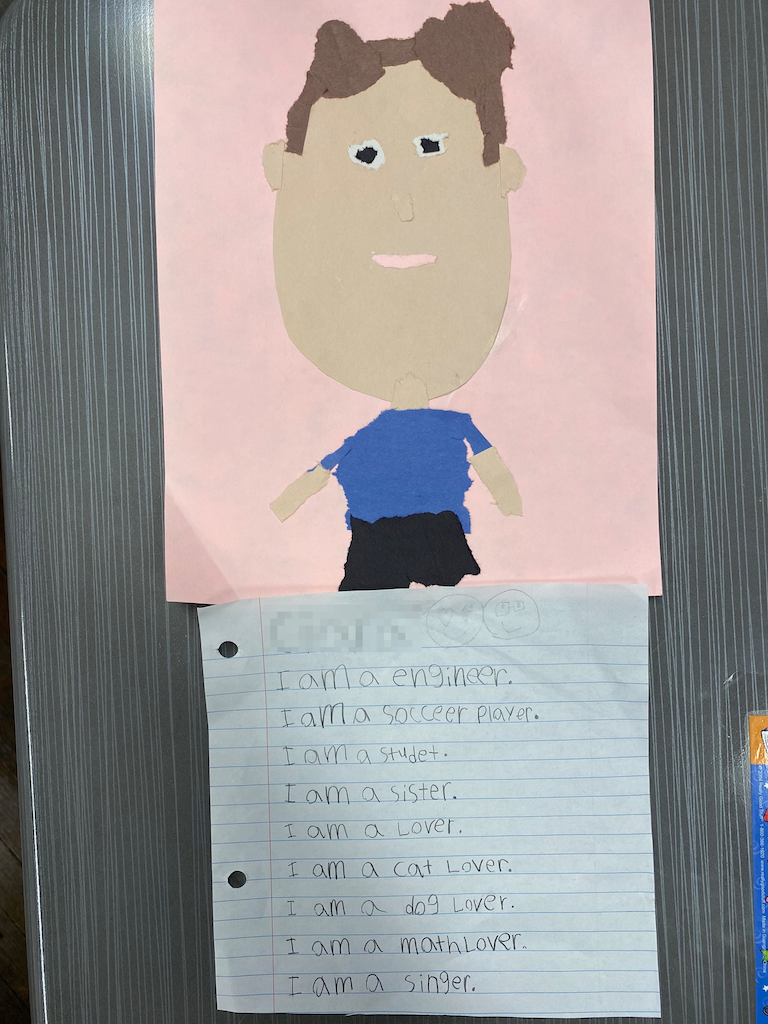 I am a engineer.
I am a socceer player.
I am a studet.
I am a sister.
I am a Lover.
I am a cat Lover.
I am a dog Lover.
I am a math Lover.
I am a singer.